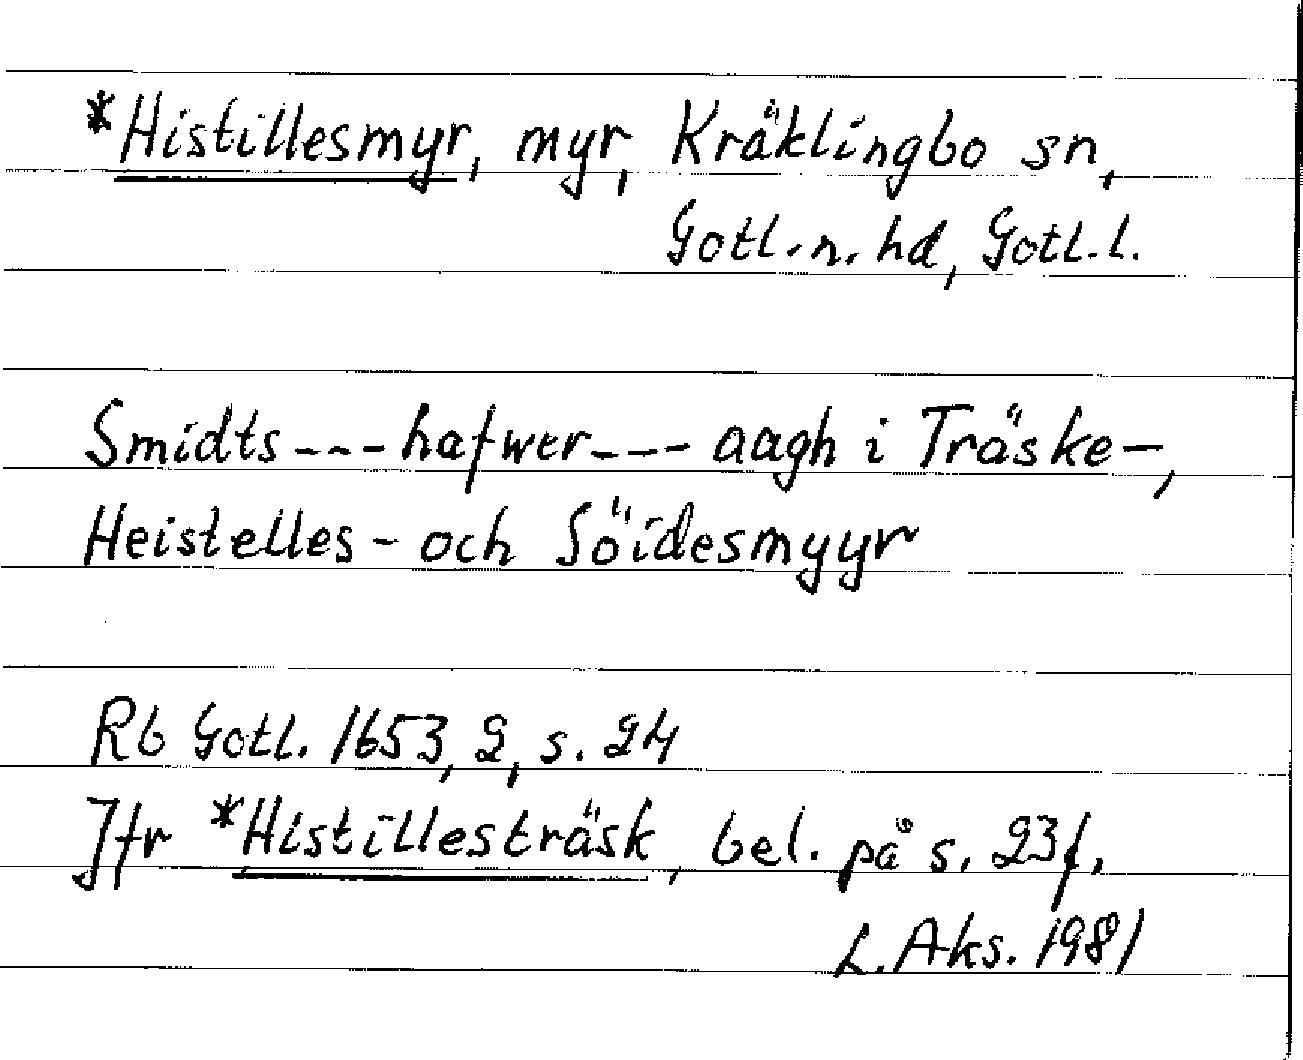 *Histillesmyr, myr, Kräklingbo sn,
Gotl.n. hd, Gotl.l.
Smidts --- hafwer --- aagh i Träske-,
Heistelles- och Söidesmyyr
Rb Gotl. 1653, 2, s. 24
Jfr *Histillesträsk, bel. på s. 23f.
L. Aks. 1981